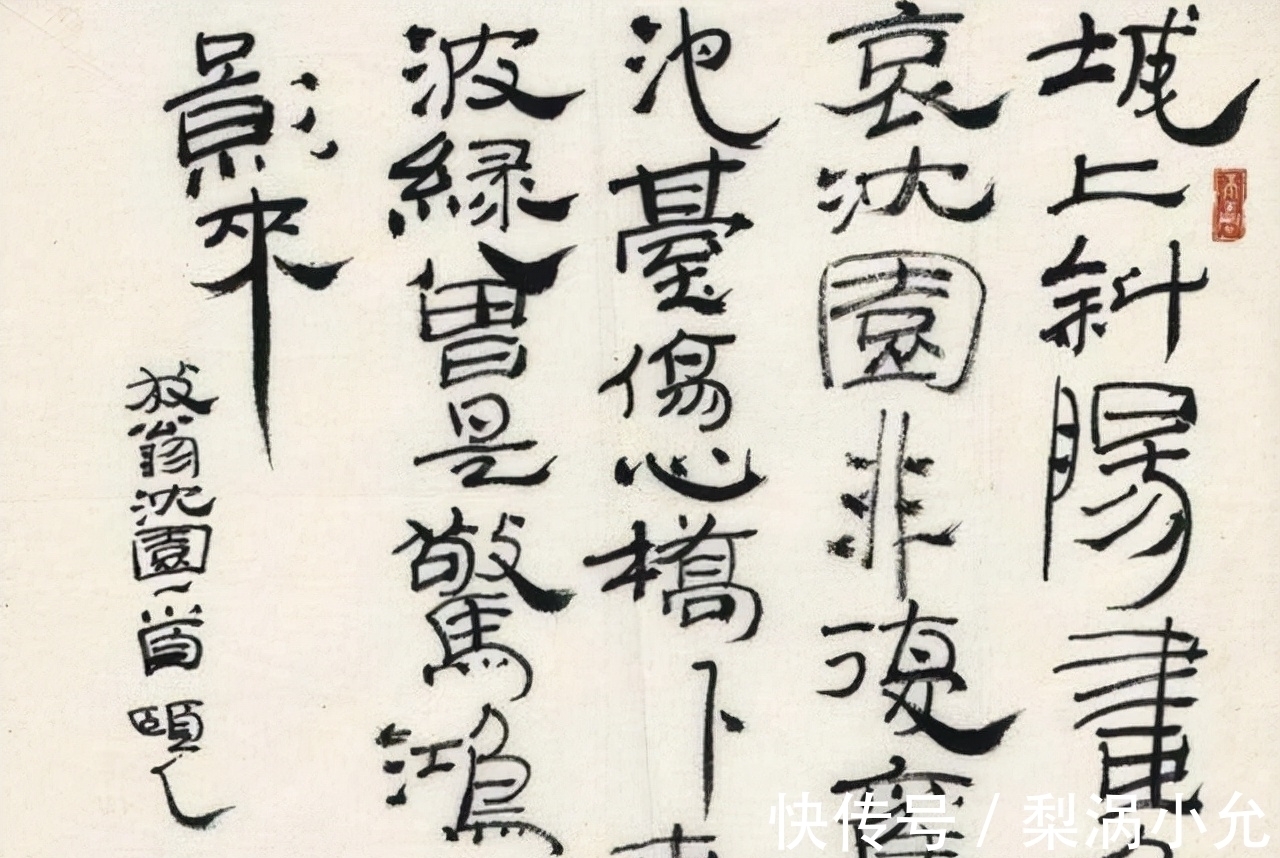 城上斜陽畫
哀沈園非復
池臺傷心橋下
波綠曾是驚鴻
影來
放翁沈園一首 頤
快传号 / 梨涡小允